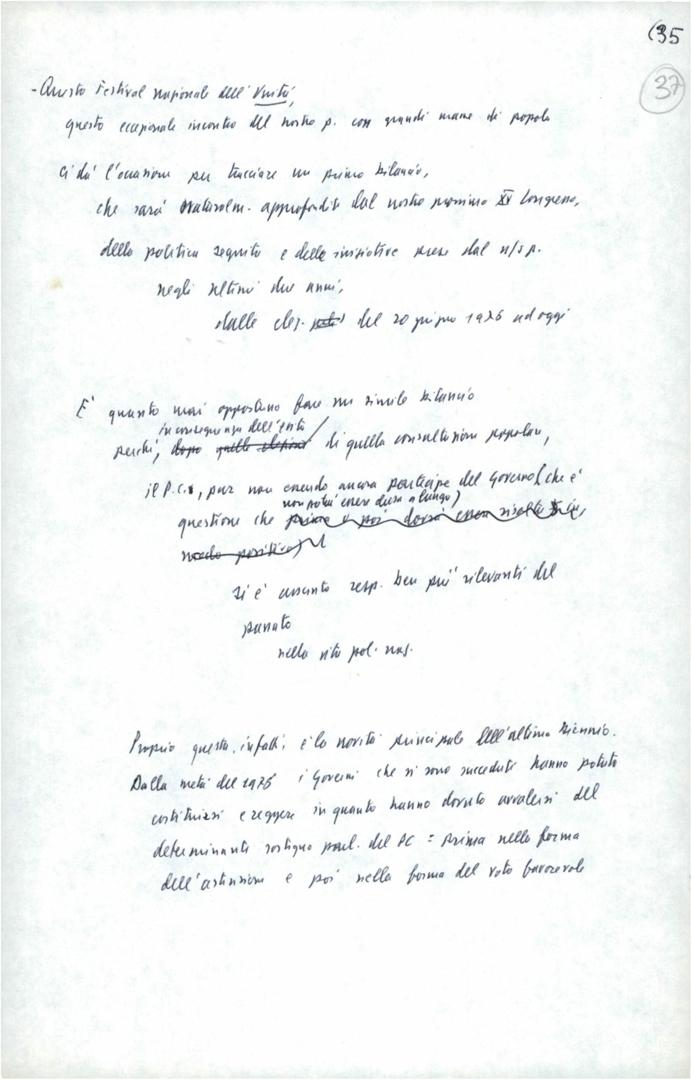 (35
37
- Questo Festival nazionale dell'Unità,
questo eccezionale incontro del nostro p. con grandi masse di popolo
ci dà l'occasione per tracciare un primo bilancio,
che sarà naturalm. approfondito dal nostro prossimo XV Congresso,
della politica seguita e delle iniziative prese dal n/s p.
negli ultimi due anni,
dalle elez. del 20 giugno 1976 ad oggi
E' quanto mai opportuno fare un simile bilancio
in conseguenza dell'esito
perché, dopo quelle elezioni di quella consultazione popolare,
il P.C.I., pur non essendo ancora partecipe del Governo (che è
non potrà essere elusa a lungo)
questione che prima o poi dovrà essere risolta in
modo positivo)
si è assunto resp. ben più rilevanti del
passato
nella vita pol. naz.
Proprio questa, infatti, è la novità principale dell'ultimo biennio.
Dalla metà del 1976 i Governi che si sono succeduti hanno potuto
costituirsi e reggere in quanto hanno dovuto avvalersi del
determinante sostegno parl. del PC = prima nella forma
dell'astensione e poi nella forma del voto favorevole